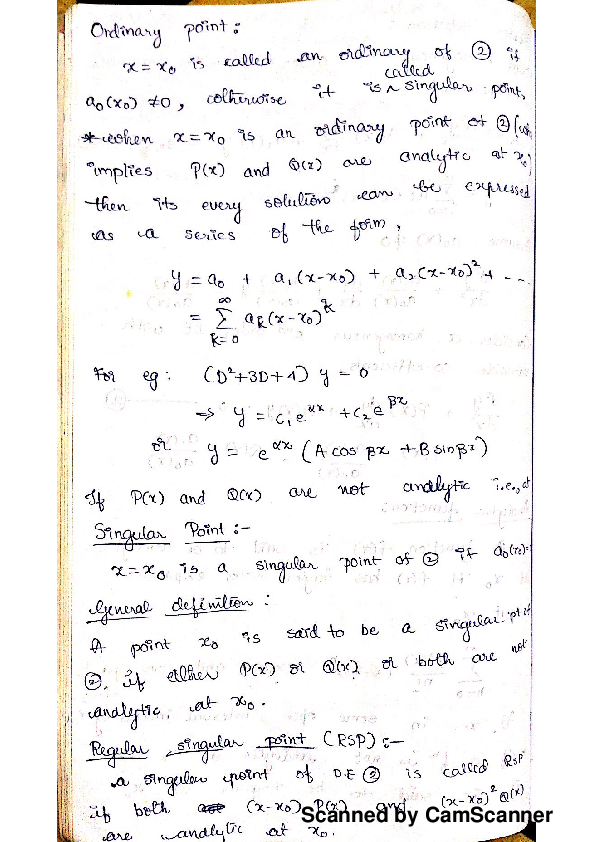 Ordinary point :
x = x₀ is called an ordinary of ② if
called
a₀(x₀) ≠ 0, otherwise it is ^ singular point,
* when x = x₀ is an ordinary point of ②
implies P(x) and Q(x) are analytic at x₀
then its every solution can be expressed
as a series of the form,
y = a₀ + a₁(x-x₀) + a₂(x-x₀)² + ...
= ∑_{k=0}^{∞} aₖ(x-x₀)^k
For eg: (D²+3D+1) y = 0
⇒ y = c₁e^{αx} + c₂e^{βx}
or y = e^{αx} (A cos βx + B sin βx)
If P(x) and Q(x) are not analytic i.e., at
Singular Point :-
x = x₀ is a singular point of ② if a₀(x₀)=
General definition :
A point x₀ is said to be a singular pt of
②, if either P(x) or Q(x) or both are not
analytic at x₀.
Regular singular point (RSP) :-
a singular point of D.E ② is called RSP
if both (x-x₀) P(x) and (x-x₀)² Q(x)
are analytic at x₀.
Scanned by CamScanner